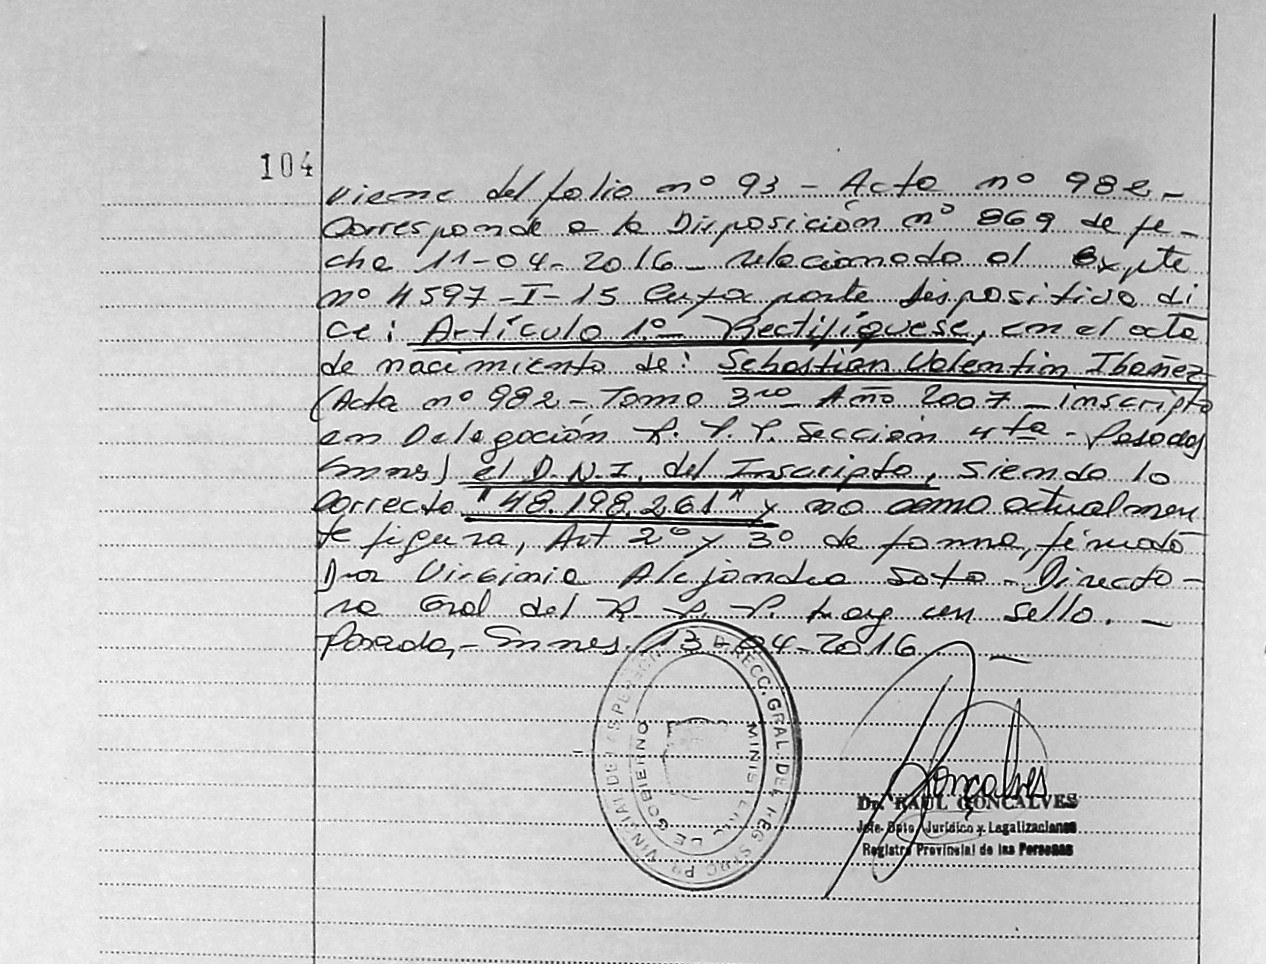 104
Viene del folio nº 93 - Acta nº 982 -
Corresponde a la Disposición nº 869 de fe-
cha 11-04-2016 - relacionado al Expte
nº 4597-I-15 Cuya parte dispositiva di
ce: Artículo 1º- Rectifíquese, en el acta
de nacimiento de: Sebastian Valentin Ibañez
(Acta nº 982 - Tomo 3ro - Año 2007 - inscripto
en Delegación R. P. P. Sección 4ta - Posadas
Mnes) el D.N.I. del Inscripto, siendo lo
correcto "48.198.261" y no como actualmen
te figura, Art 2º y 3º de forma, firmado
Dra Virginia Alejandra Soto - Directo-
ra Gral del R. P. P. hay un sello. -
Posadas, - Mnes. 13-04-2016 -
DIRECC. GRAL. DEL REGISTRO PROVINCIAL DE LAS PERSONAS
MINISTERIO DE GOBIERNO
Gonçalves
Dr. RAUL GONCALVES
Jefe Dpto. Jurídico y Legalizaciones
Registro Provincial de las Personas